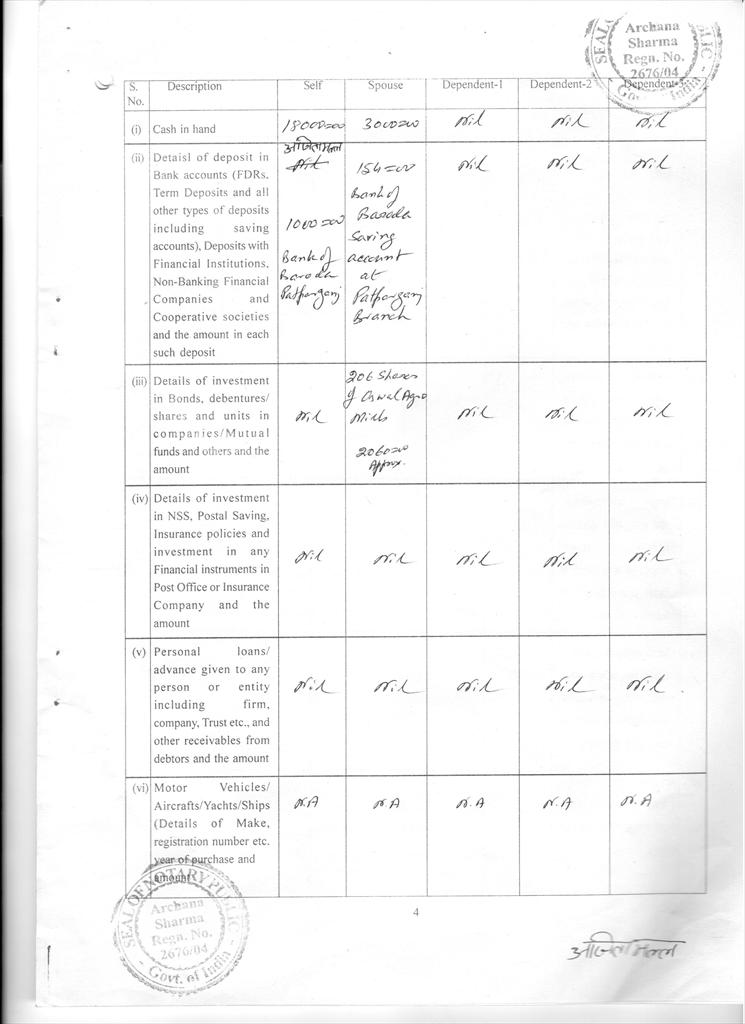 SEAL OF NOTARY PUBLIC
Archana
Sharma
Regn. No.
2676/04
Govt. of India
S. No. Description Self Spouse Dependent-1 Dependent-2 Dependent-3
(i) Cash in hand 18000=00 3000=00 Nil Nil Nil
(ii) Detaisl of deposit in
Bank accounts (FDRs,
Term Deposits and all
other types of deposits
including saving
accounts), Deposits with
Financial Institutions,
Non-Banking Financial
Companies and
Cooperative societies
and the amount in each
such deposit
Nil
1000=00
Bank of
Baroda
Patparganj
154=00
Bank of
Baroda
Saving
account
at
Patparganj
Branch
Nil Nil Nil
(iii) Details of investment
in Bonds, debentures/
shares and units in
companies/Mutual
funds and others and the
amount
Nil
206 Shares
of Oswal Agro
Mills
2060=00
Approx.
Nil Nil Nil
(iv) Details of investment
in NSS, Postal Saving,
Insurance policies and
investment in any
Financial instruments in
Post Office or Insurance
Company and the
amount
Nil Nil Nil Nil Nil
(v) Personal loans/
advance given to any
person or entity
including firm,
company, Trust etc., and
other receivables from
debtors and the amount
Nil Nil Nil Nil Nil
(vi) Motor Vehicles/
Aircrafts/Yachts/Ships
(Details of Make,
registration number etc.
year of purchase and
amount
N.A N.A N.A N.A N.A
SEAL OF NOTARY PUBLIC
Archana
Sharma
Regn. No.
2676/04
Govt. of India
4